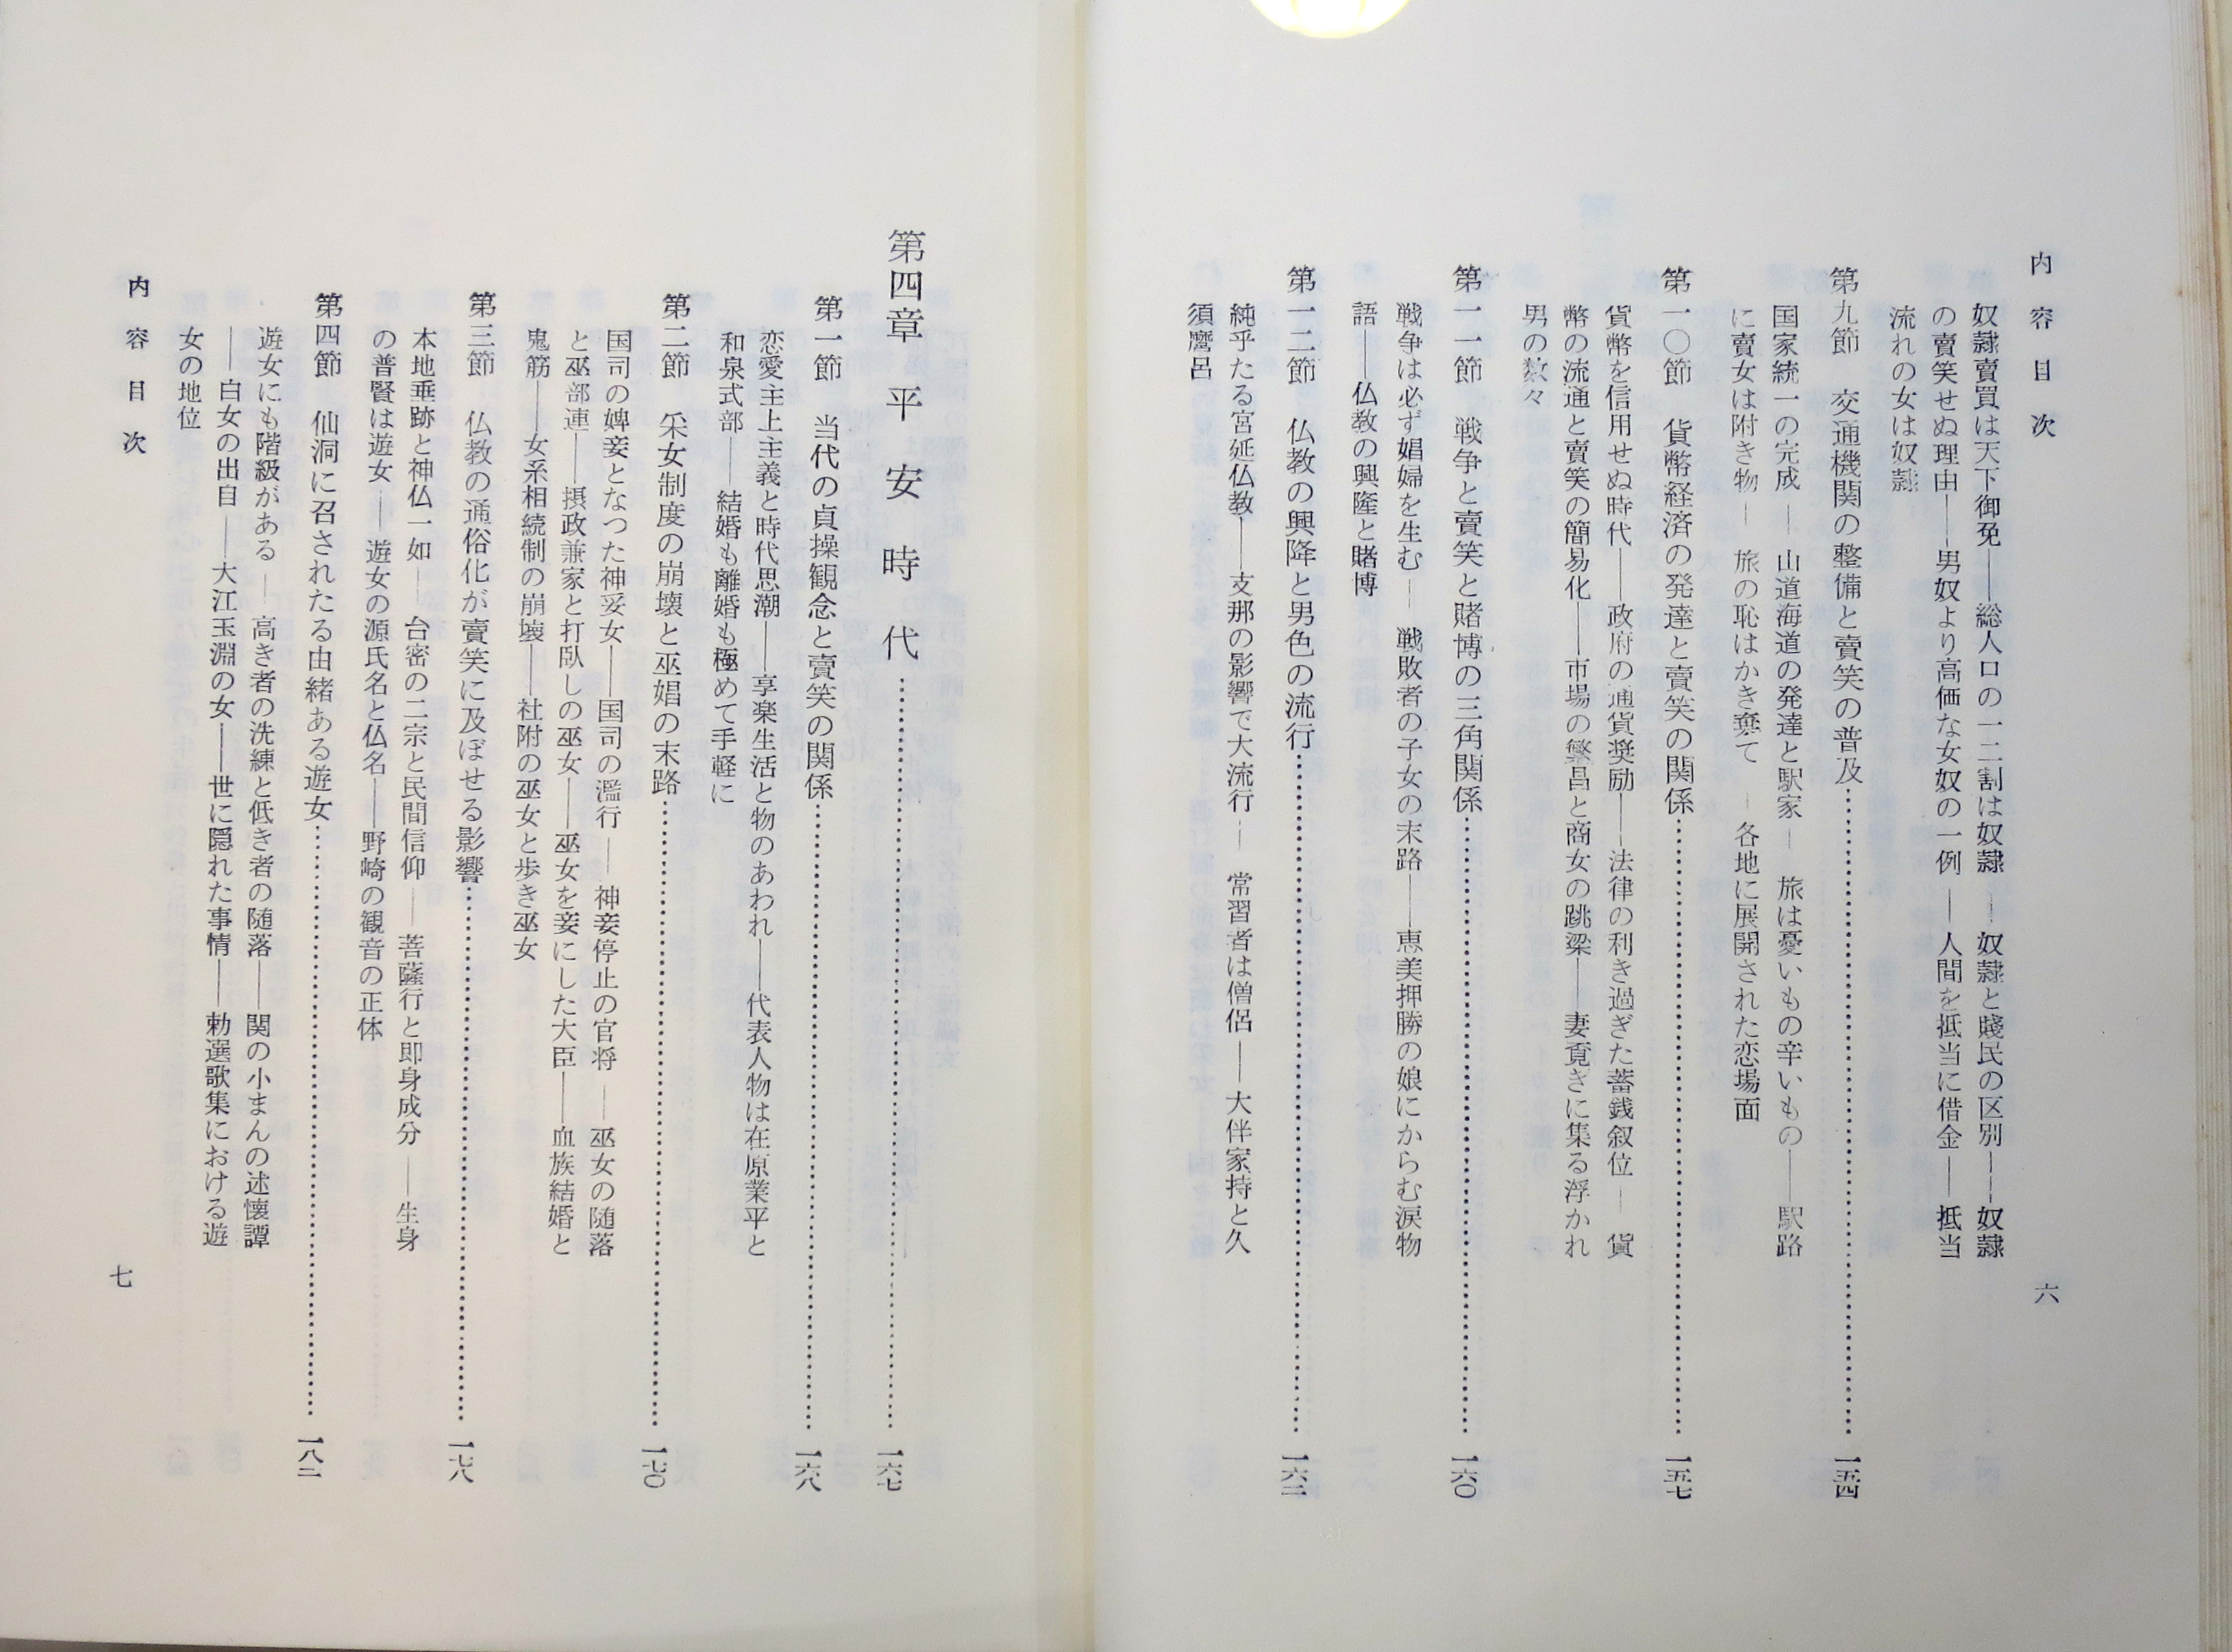 内容目次
六
奴隷賣買は天下御免――総人口の一二割は奴隷――奴隷と賤民の区別――奴隷
の賣笑せぬ理由――男奴より高価な女奴の一例――人間を抵当に借金――抵当
流れの女は奴隷
第九節　交通機関の整備と賣笑の普及……………一五四
国家統一の完成――山道海道の発達と駅家――旅は憂いもの辛いもの――駅路
に賣女は附き物――旅の恥はかき棄て――各地に展開された恋場面
第一〇節　貨幣経済の発達と賣笑の関係……………一五七
貨幣を信用せぬ時代――政府の通貨奨励――法律の利き過ぎた蓄銭叙位――貨
幣の流通と賣笑の簡易化――市場の繁昌と商女の跳梁――妻覔ぎに集る浮かれ
男の数々
第一一節　戦争と賣笑と賭博の三角関係……………一六〇
戦争は必ず娼婦を生む――戦敗者の子女の末路――恵美押勝の娘にからむ涙物
語――仏教の興隆と賭博
第一二節　仏教の興降と男色の流行……………一六二
純乎たる宮延仏教――支那の影響で大流行――常習者は僧侶――大伴家持と久
須麿呂
第四章　平安時代……………一六七
第一節　当代の貞操観念と賣笑の関係……………一六八
恋愛主上主義と時代思潮――享楽生活と物のあわれ――代表人物は在原業平と
和泉式部――結婚も離婚も極めて手軽に
第二節　采女制度の崩壊と巫娼の末路……………一七〇
国司の婢妾となつた神妥女――国司の濫行――神妾停止の官将――巫女の随落
と巫部連――摂政兼家と打臥しの巫女――巫女を妾にした大臣――血族結婚と
鬼筋――女系相続制の崩壊――社附の巫女と歩き巫女
第三節　仏教の通俗化が賣笑に及ぼせる影響……………一七八
本地垂跡と神仏一如――台密の二宗と民間信仰――菩薩行と即身成分――生身
の普賢は遊女――遊女の源氏名と仏名――野崎の観音の正体
第四節　仙洞に召されたる由緒ある遊女……………一八二
遊女にも階級がある――高き者の洗練と低き者の随落――関の小まんの述懐譚
――白女の出自――大江玉淵の女――世に隠れた事情――勅選歌集における遊
女の地位
内容目次
七